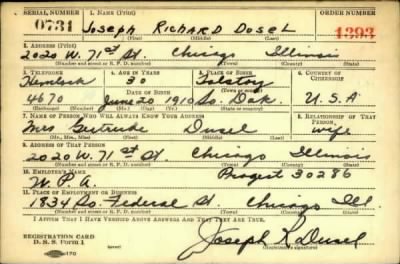 SERIAL NUMBER 1. NAME (Print) ORDER NUMBER
0731 JOSEPH RICHARD DUSEL 1393
(First) (Middle) (Last)
2. ADDRESS (Print)
2020 W. 71st St. Chicago Illinois
(Number and street or R. F. D. number) (Town) (County) (State)
3. TELEPHONE 4. AGE IN YEARS 5. PLACE OF BIRTH 6. COUNTRY OF CITIZENSHIP
Hemlock 30 Tolstoy
DATE OF BIRTH (Town or county)
4670 June 20 1910 So. Dak. U.S.A
(Exchange) (Number) (Mo.) (Day) (Yr.) (State or country)
7. NAME OF PERSON WHO WILL ALWAYS KNOW YOUR ADDRESS 8. RELATIONSHIP OF THAT PERSON
Mrs Gertrude Dusel wife
(Mr., Mrs., Miss) (First) (Middle) (Last)
9. ADDRESS OF THAT PERSON
2020 W. 71st St. Chicago Illinois
(Number and street or R. F. D. number) (Town) (County) (State)
10. EMPLOYER'S NAME
W.P.A. Project 30286
11. PLACE OF EMPLOYMENT OR BUSINESS
1834 So. Federal St. Chicago Ill.
(Number and street or R. F. D. number) (Town) (County) (State)
I AFFIRM THAT I HAVE VERIFIED ABOVE ANSWERS AND THAT THEY ARE TRUE.
REGISTRATION CARD
D. S. S. Form 1 Joseph R Dusel
(Registrant's signature)